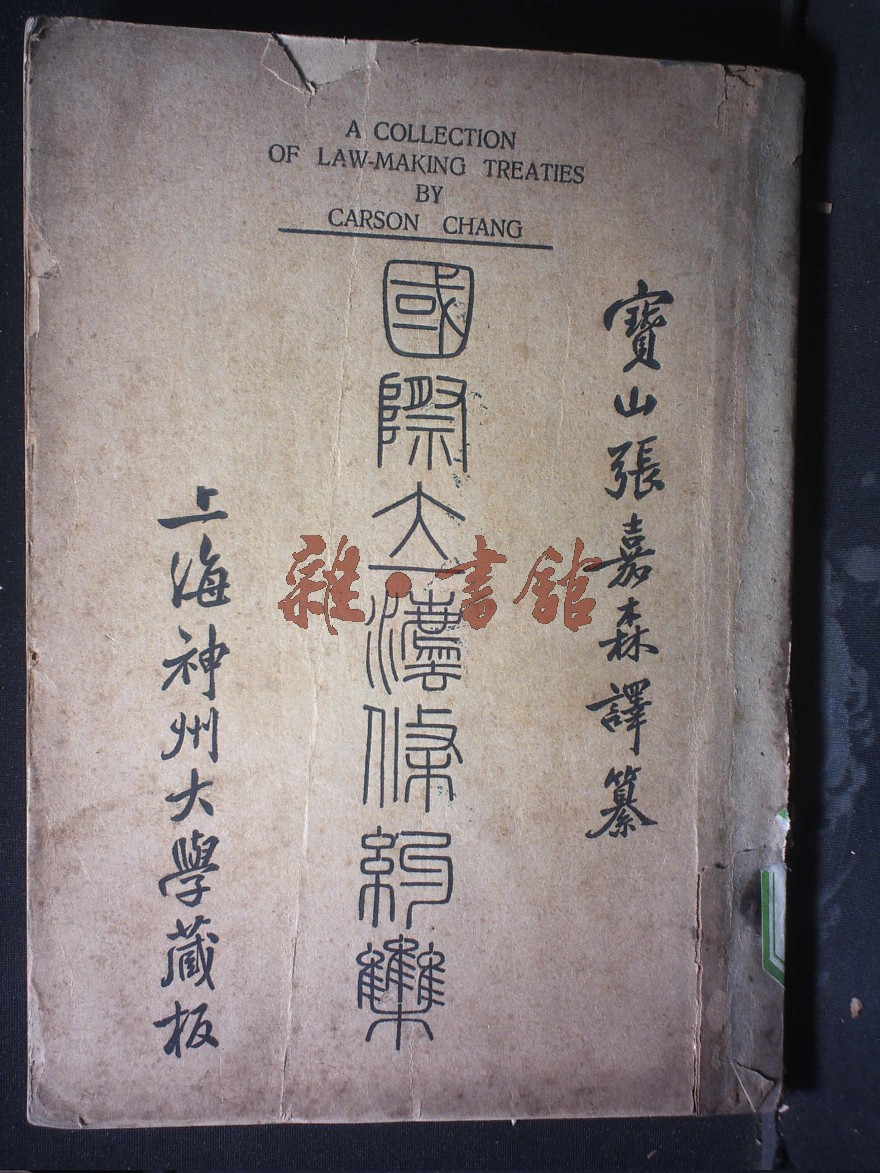 A COLLECTION
OF LAW-MAKING TREATIES
BY
CARSON CHANG
寶山張嘉森譯纂
國際大灋條約集
上海神州大學藏板
雜·書館